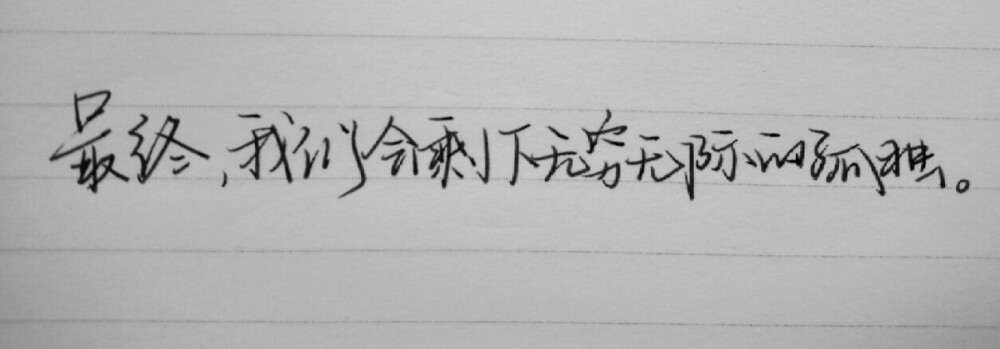 最终,我们会剩下无穷无际的孤独。